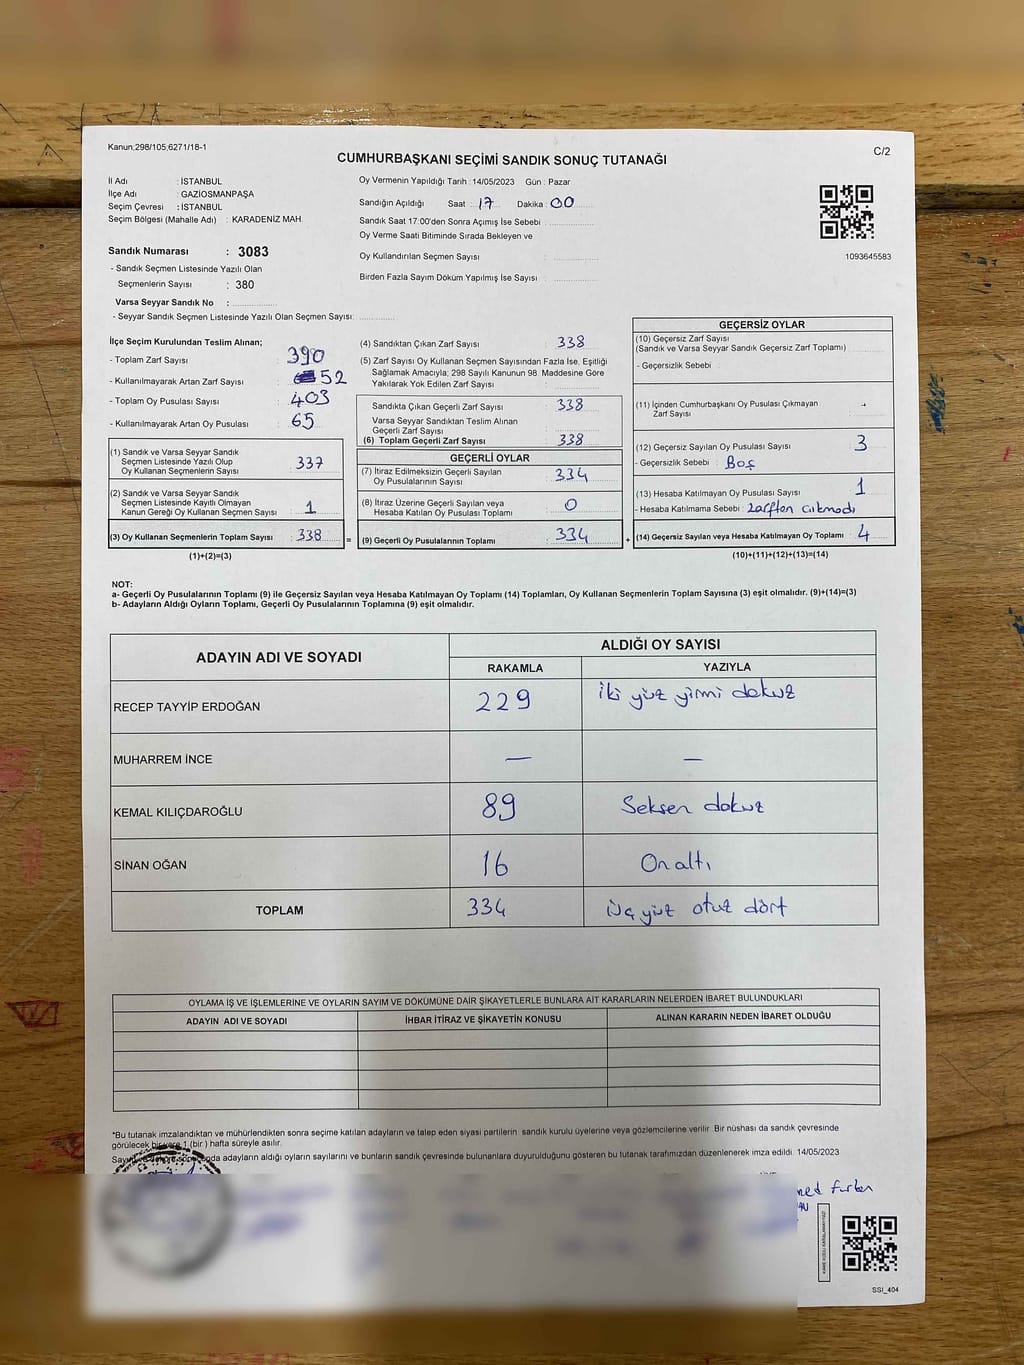 Kanun,298/105,6271/18-1
CUMHURBAŞKANI SEÇİMİ SANDIK SONUÇ TUTANAĞI
C/2
İl Adı : İSTANBUL
İlçe Adı : GAZİOSMANPAŞA
Seçim Çevresi : İSTANBUL
Seçim Bölgesi (Mahalle Adı) : KARADENİZ MAH.
Oy Vermenin Yapıldığı Tarih :14/05/2023 Gün : Pazar
Sandığın Açıldığı Saat : 17 Dakika : 00
Sandık Saat 17:00'den Sonra Açımış İse Sebebi :
Oy Verme Saati Bitiminde Sırada Bekleyen ve
Oy Kullandırılan Seçmen Sayısı :
Birden Fazla Sayım Döküm Yapılmış İse Sayısı :
1093645583
Sandık Numarası : 3083
- Sandık Seçmen Listesinde Yazılı Olan
Seçmenlerin Sayısı : 380
Varsa Seyyar Sandık No :
- Seyyar Sandık Seçmen Listesinde Yazılı Olan Seçmen Sayısı:
İlçe Seçim Kurulundan Teslim Alınan;
- Toplam Zarf Sayısı : 390
- Kullanılmayarak Artan Zarf Sayısı : 52
- Toplam Oy Pusulası Sayısı : 403
- Kullanılmayarak Artan Oy Pusulası : 65
(1) Sandık ve Varsa Seyyar Sandık
Seçmen Listesinde Yazılı Olup
Oy Kullanan Seçmenlerin Sayısı : 337
(2) Sandık ve Varsa Seyyar Sandık
Seçmen Listesinde Kayıtlı Olmayan
Kanun Gereği Oy Kullanan Seçmen Sayısı : 1
(3) Oy Kullanan Seçmenlerin Toplam Sayısı : 338
(1)+(2)=(3)
(4) Sandıktan Çıkan Zarf Sayısı : 338
(5) Zarf Sayısı Oy Kullanan Seçmen Sayısından Fazla İse, Eşitliği
Sağlamak Amacıyla; 298 Sayılı Kanunun 98. Maddesine Göre
Yakılarak Yok Edilen Zarf Sayısı :
Sandıkta Çıkan Geçerli Zarf Sayısı : 338
Varsa Seyyar Sandıktan Teslim Alınan
Geçerli Zarf Sayısı :
(6) Toplam Geçerli Zarf Sayısı : 338
GEÇERLİ OYLAR
(7) İtiraz Edilmeksizin Geçerli Sayılan
Oy Pusulalarının Sayısı : 334
(8) İtiraz Üzerine Geçerli Sayılan veya
Hesaba Katılan Oy Pusulası Toplamı : 0
= (9) Geçerli Oy Pusulalarının Toplamı : 334
GEÇERSİZ OYLAR
(10) Geçersiz Zarf Sayısı
(Sandık ve Varsa Seyyar Sandık Geçersiz Zarf Toplamı)
- Geçersizlik Sebebi :
(11) İçinden Cumhurbaşkanı Oy Pusulası Çıkmayan
Zarf Sayısı :
(12) Geçersiz Sayılan Oy Pusulası Sayısı : 3
- Geçersizlik Sebebi : Boş
(13) Hesaba Katılmayan Oy Pusulası Sayısı : 1
- Hesaba Katılmama Sebebi : zarften çıkmadı
+ (14) Geçersiz Sayılan veya Hesaba Katılmayan Oy Toplamı : 4
(10)+(11)+(12)+(13)=(14)
NOT:
a- Geçerli Oy Pusulalarının Toplamı (9) ile Geçersiz Sayılan veya Hesaba Katılmayan Oy Toplamı (14) Toplamları, Oy Kullanan Seçmenlerin Toplam Sayısına (3) eşit olmalıdır. (9)+(14)=(3)
b- Adayların Aldığı Oyların Toplamı, Geçerli Oy Pusulalarının Toplamına (9) eşit olmalıdır.
ADAYIN ADI VE SOYADI ALDIĞI OY SAYISI
RAKAMLA YAZIYLA
RECEP TAYYİP ERDOĞAN 229 iki yüz yirmi dokuz
MUHARREM İNCE — —
KEMAL KILIÇDAROĞLU 89 Seksen dokuz
SİNAN OĞAN 16 On altı
TOPLAM 334 üç yüz otuz dört
OYLAMA İŞ VE İŞLEMLERİNE VE OYLARIN SAYIM VE DÖKÜMÜNE DAİR ŞİKAYETLERLE BUNLARA AİT KARARLARIN NELERDEN İBARET BULUNDUKLARI
ADAYIN ADI VE SOYADI İHBAR İTİRAZ VE ŞİKAYETİN KONUSU ALINAN KARARIN NEDEN İBARET OLDUĞU
*Bu tutanak imzalandıktan ve mühürlendikten sonra seçime katılan adayların ve talep eden siyasi partilerin sandık kurulu üyelerine veya gözlemcilerine verilir. Bir nüshası da sandık çevresinde
görülecek bir yere 1 (bir) hafta süreyle asılır.
adayların aldığı oyların sayılarını ve bunların sandık çevresinde bulunanlara duyurulduğunu gösteren bu tutanak tarafımızdan düzenlenerek imza edildi. 14/05/2023
SSİ_404